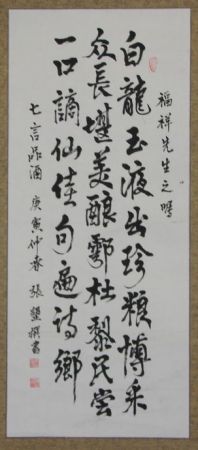 福祥先生之嘱
白龍玉液出珍粮博采
众長堪美釀鄠杜黎民尝
一口謫仙佳句遍诗鄉
七言品酒 庚寅仲春 張 撰書